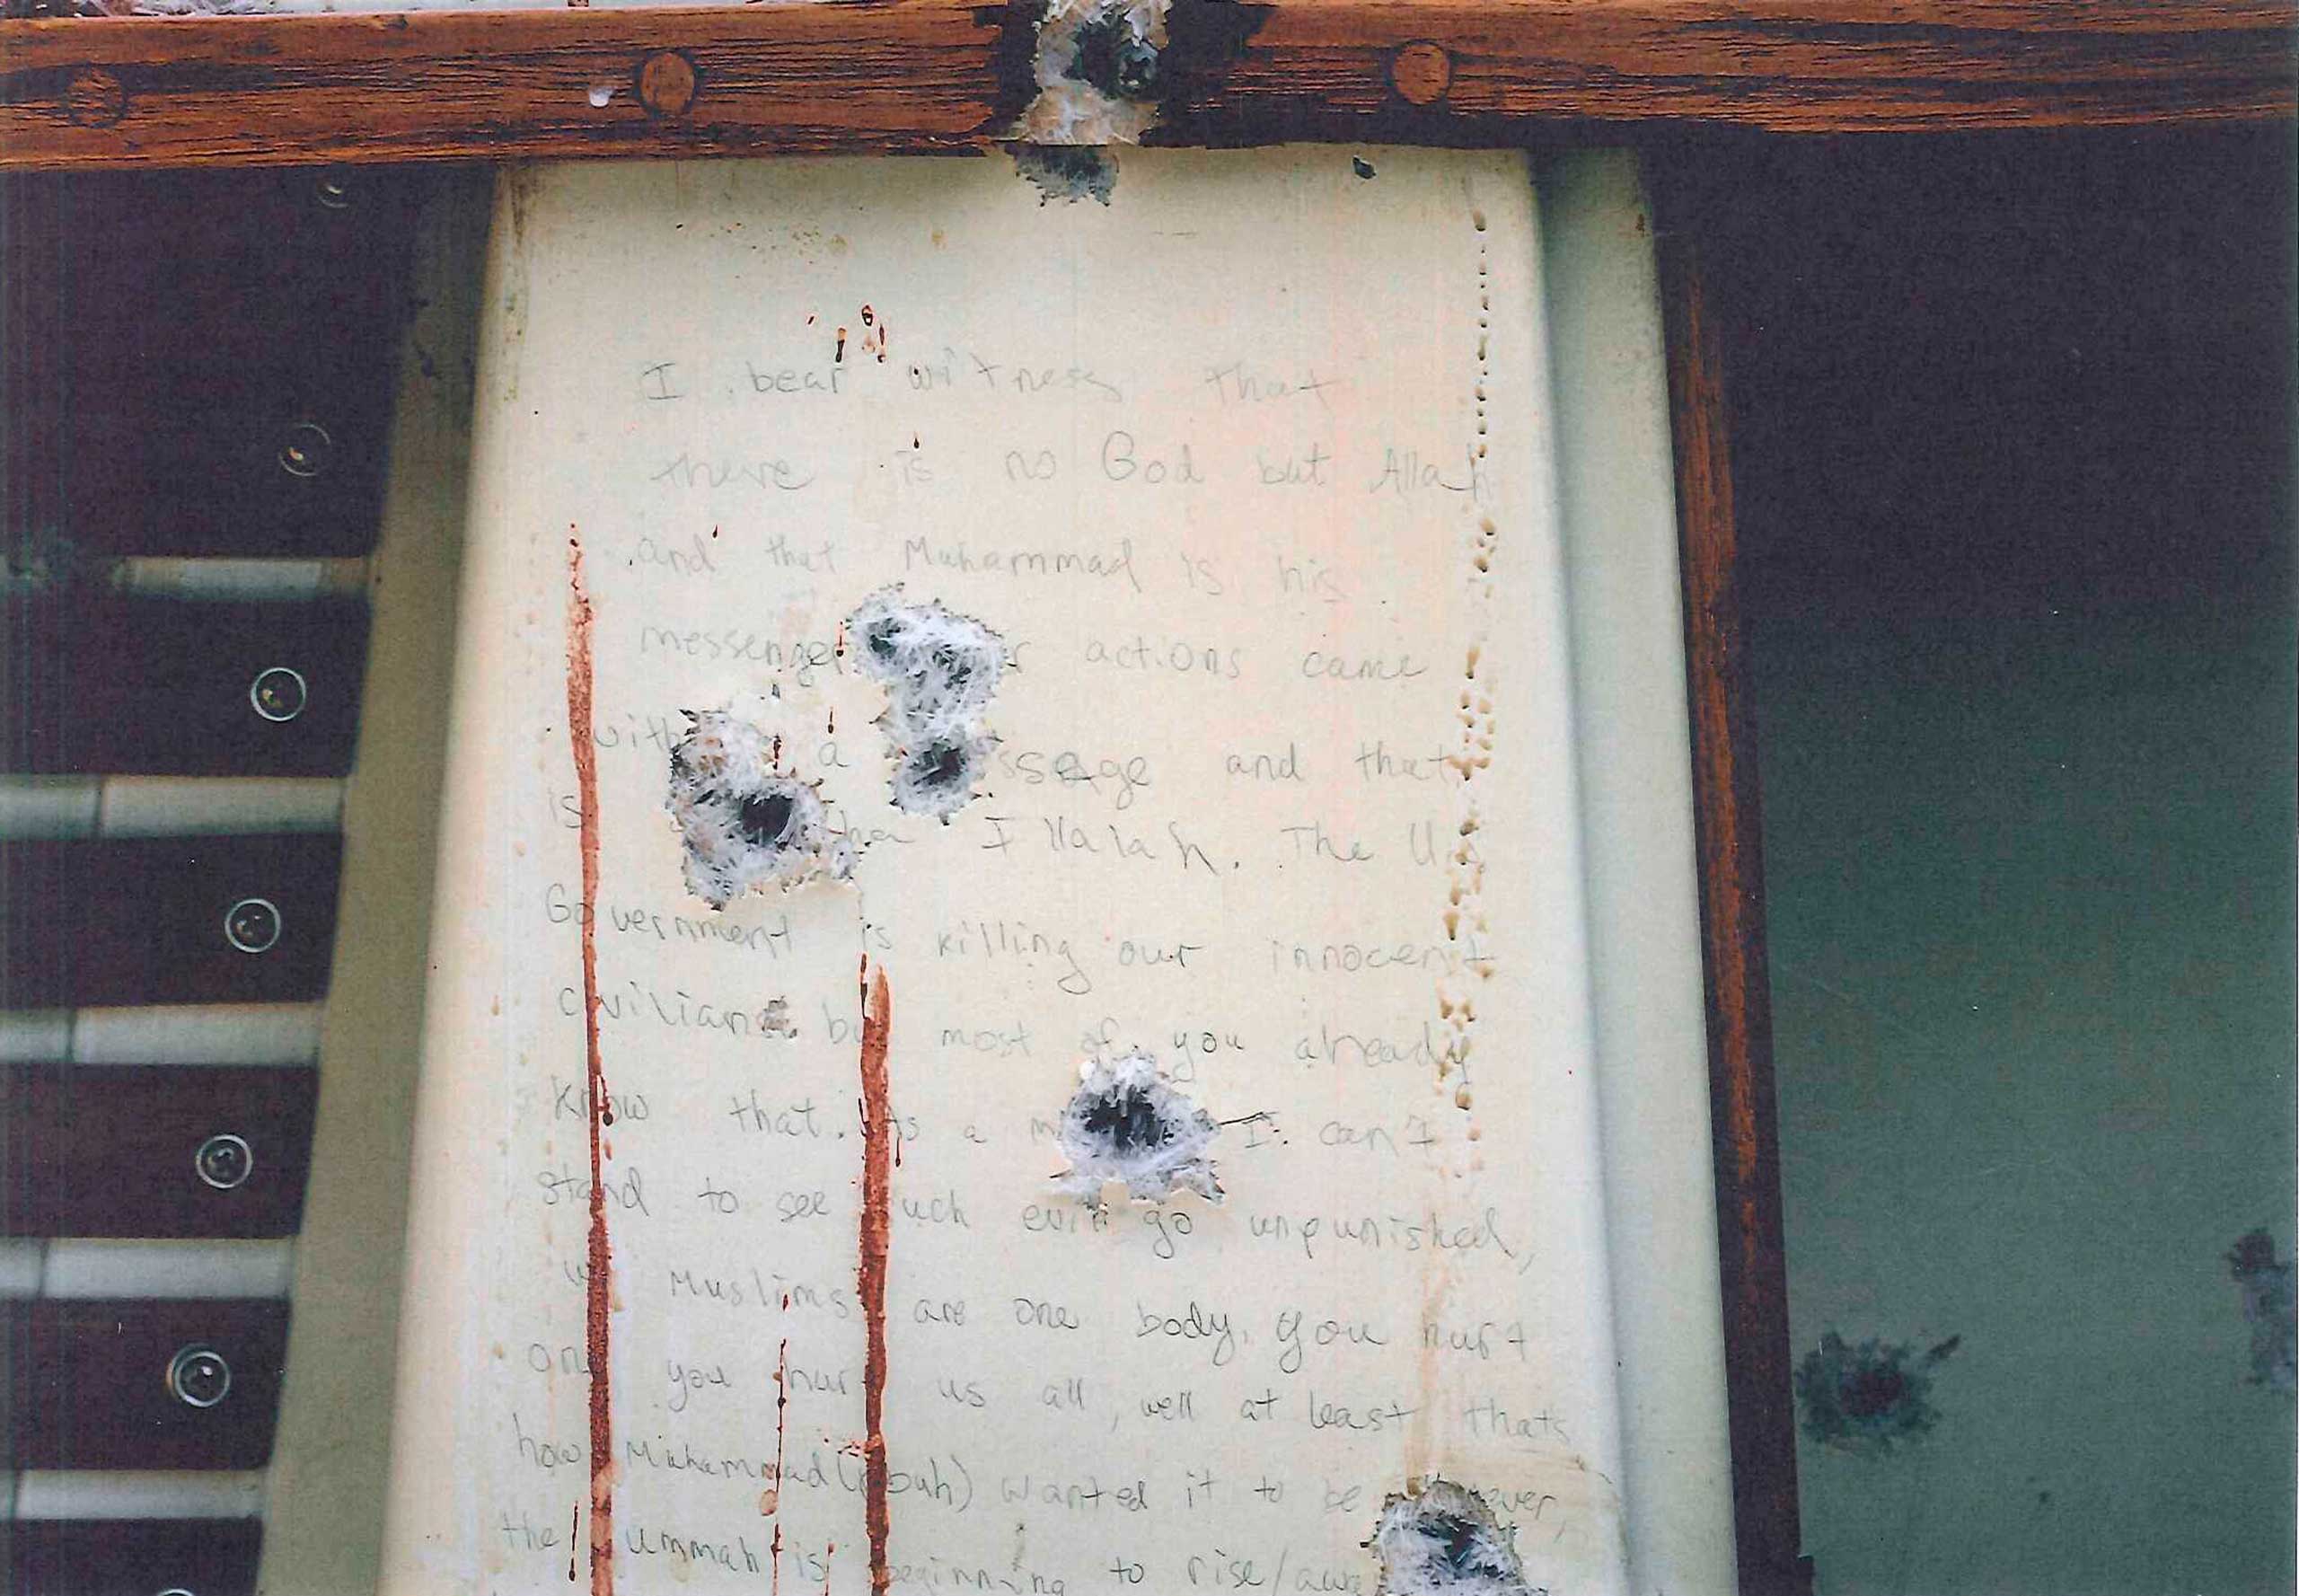 I bear witness that
there is no God but Allah
and that Muhammad is his
messenger r actions came
with a ssage and that
is tha Illalah. The U.S
Government is killing our innocent
civilians but most of you already
know that. As a m I can't
stand to see such evil go unpunished,
we Muslims are one body, you hurt
one you hurt us all, well at least thats
how Muhammad (pbuh) wanted it to be ever,
the ummah is beginning to rise/awa